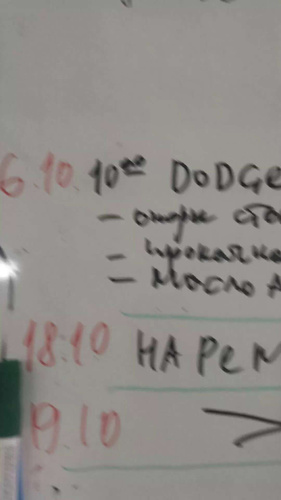 6.10. 10⁰⁰ DODGE
- опоры ста
- прокачка
- Масло А
18.10 НА РЕМ
19.10